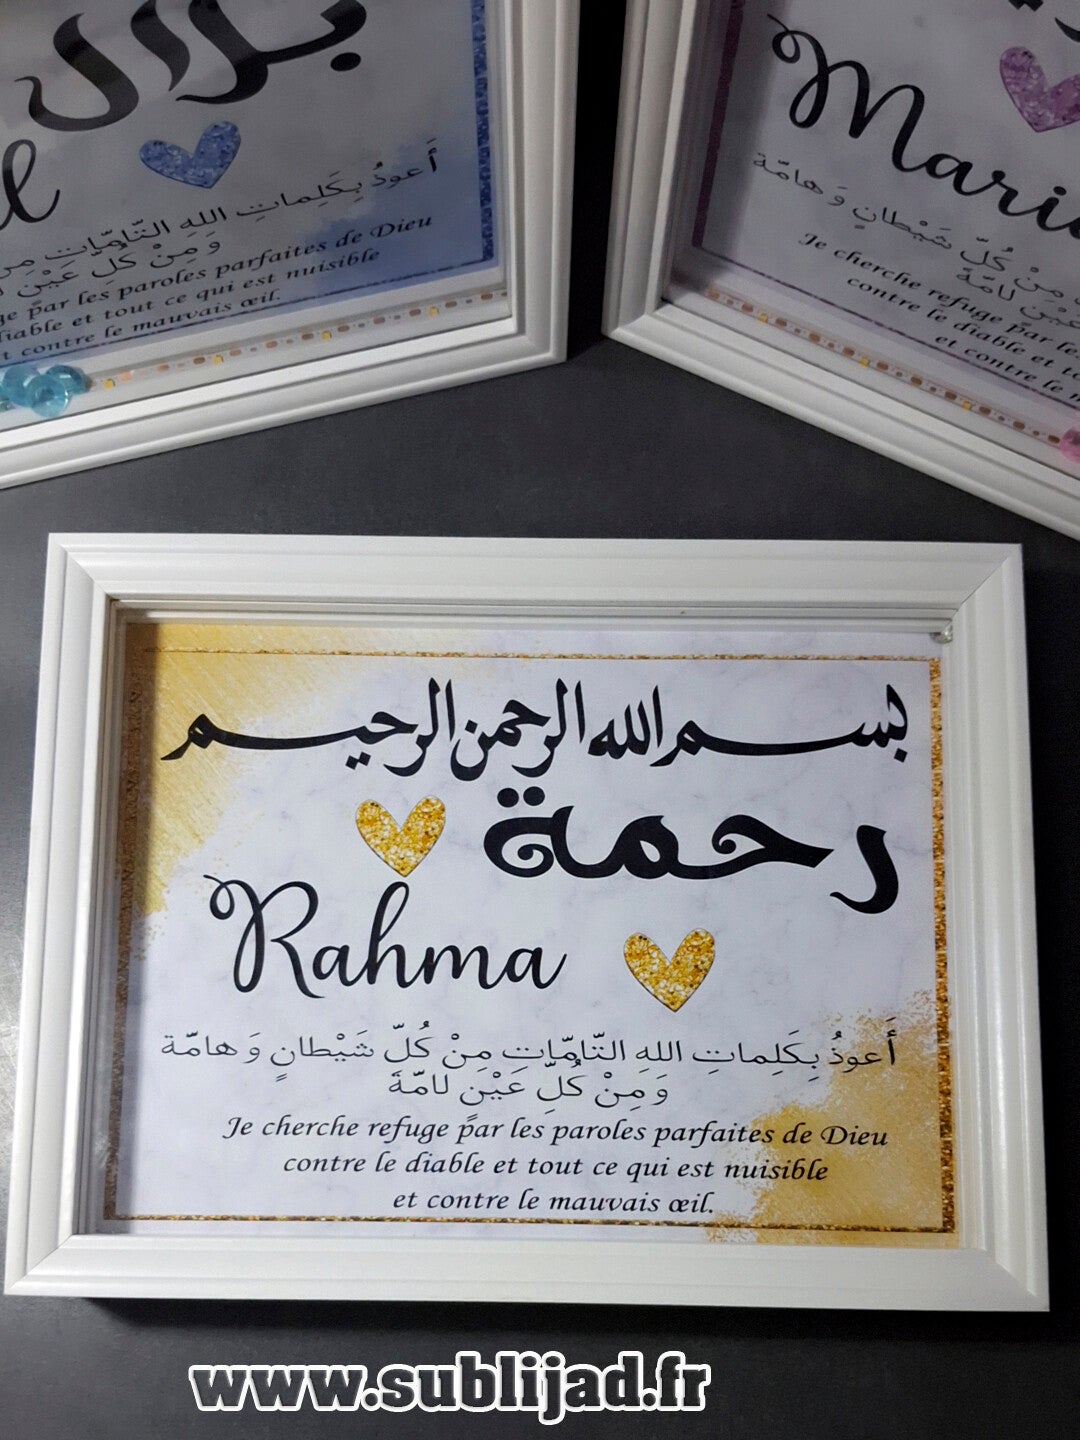 بلال
أَعوذُ بِكَلِماتِ اللهِ التّامّاتِ
وَ مِنْ كُلِّ عَيْنٍ
par les paroles parfaites de Dieu
diable et tout ce qui est nuisible
et contre le mauvais œil.
مِنْ كُلِّ شَيْطانٍ وَ هامّة
عَيْنٍ لامّةَ
Je cherche refuge par les
contre le diable et
et contre le
بسم الله الرحمن الرحيم
رحمة
Rahma
أَعوذُ بِكَلِماتِ اللهِ التّامّاتِ مِنْ كُلِّ شَيْطانٍ وَ هامّة
وَ مِنْ كُلِّ عَيْنٍ لامّةَ
Je cherche refuge par les paroles parfaites de Dieu
contre le diable et tout ce qui est nuisible
et contre le mauvais œil.
www.sublijad.fr